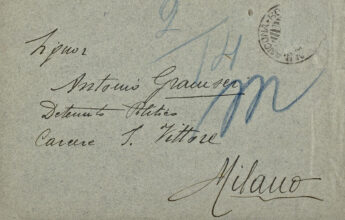 2
14 m
Signor
Antonio Gramsci
Detenuto Politico
Carcere S. Vittore
Milano